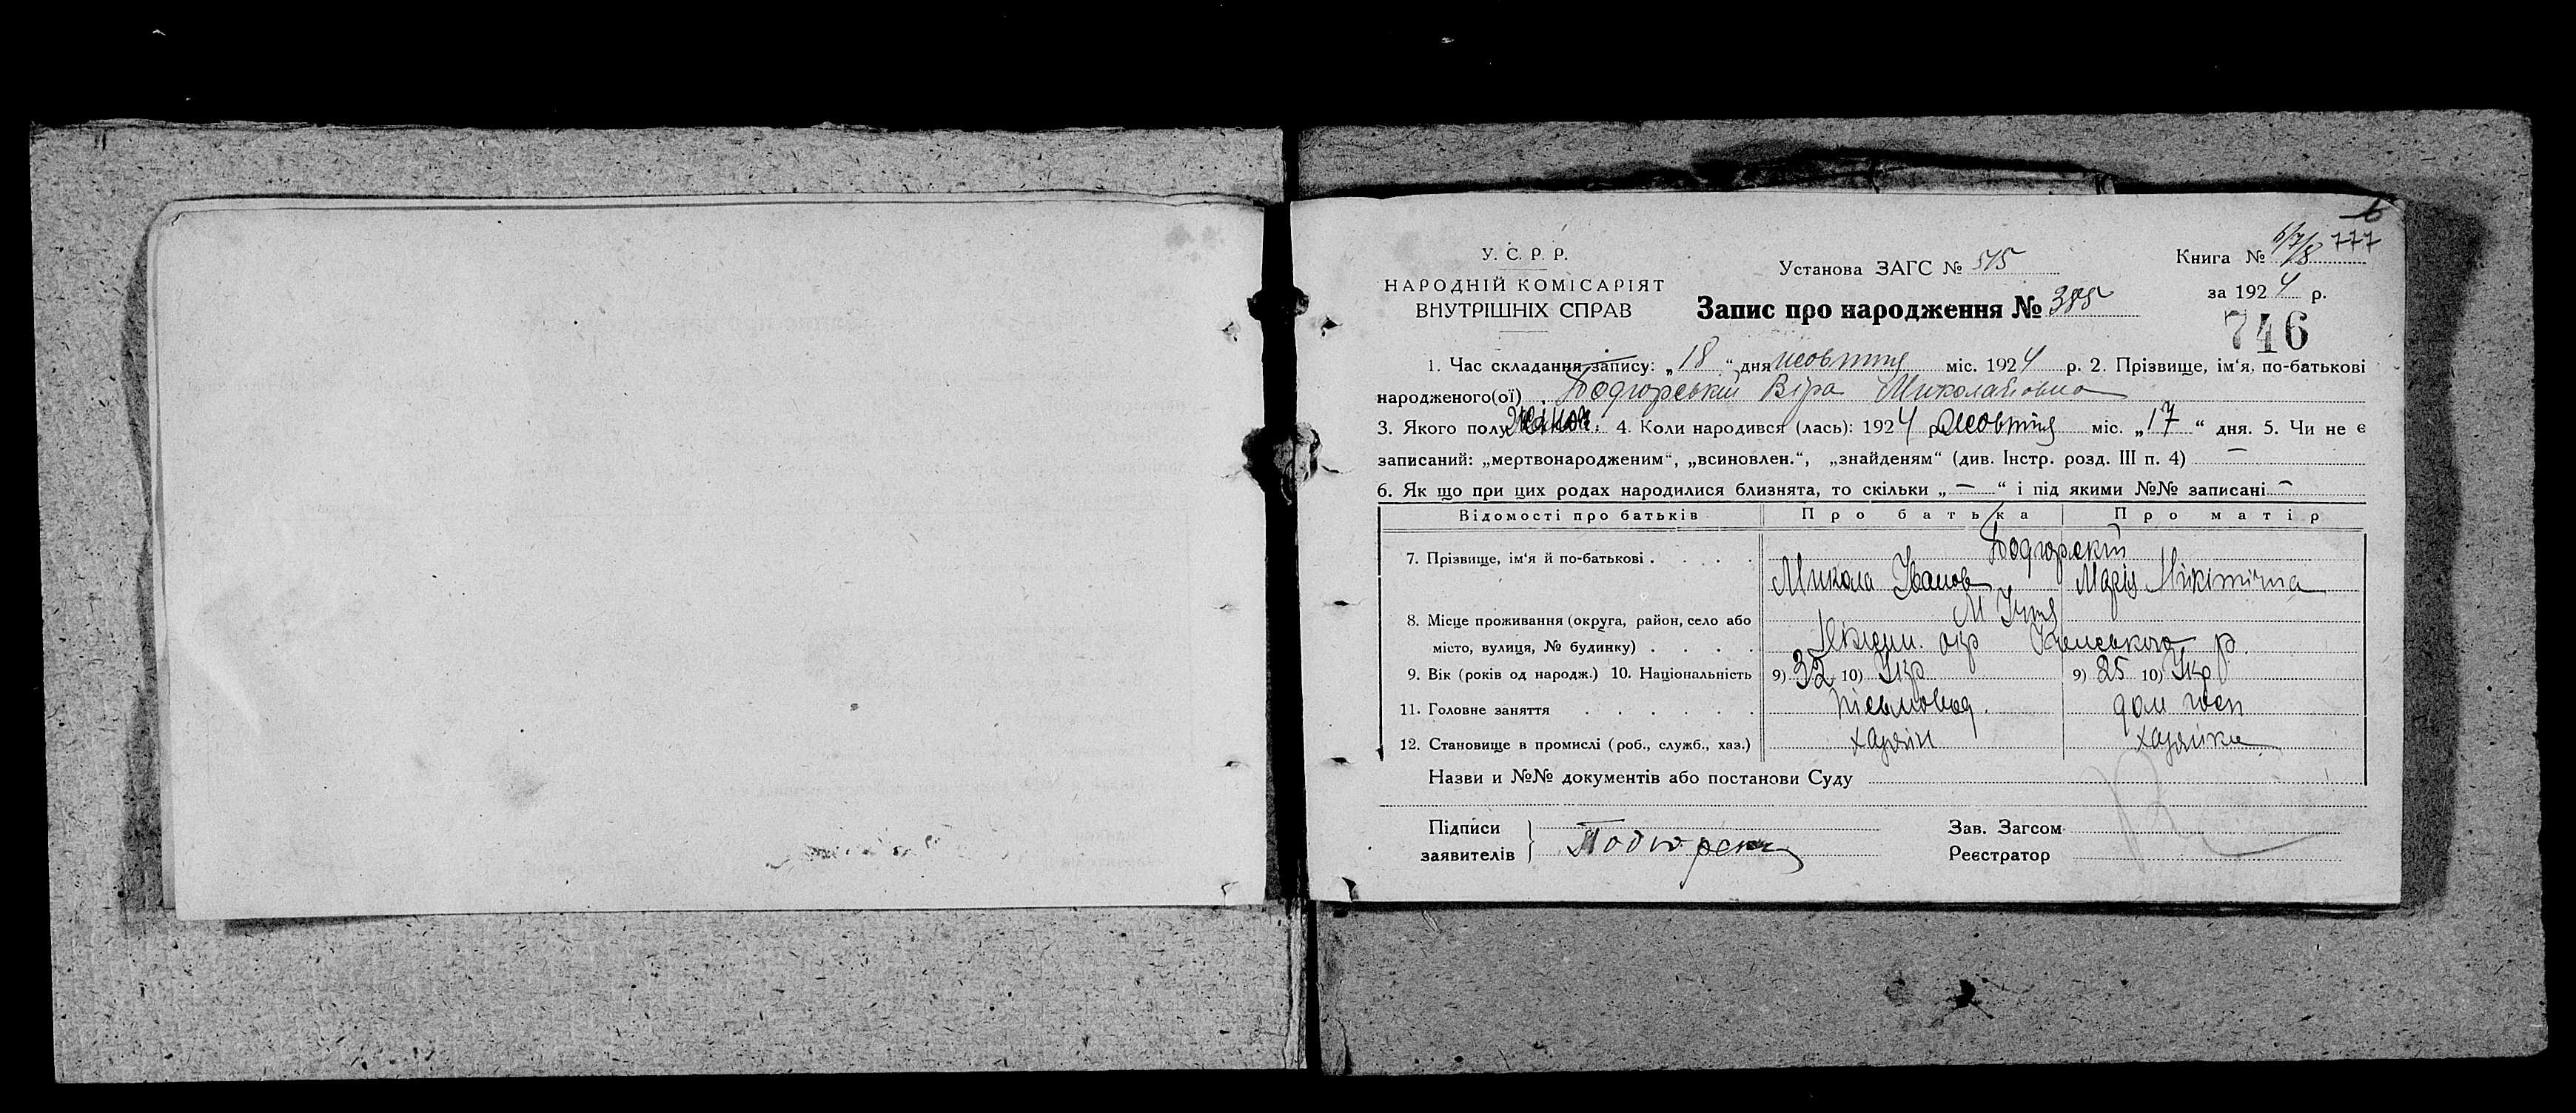 777
У. С. Р. Р.
НАРОДНІЙ КОМІСАРІЯТ
ВНУТРІШНІХ СПРАВ
Установа ЗАГС № 515
Книга № 6/7/8
за 1924 р.
Запис про народження № 385
746
1. Час складання запису: „18“ дня жовтня міс. 1924 р. 2. Прізвище, ім‘я, по-батькові
народженого(ої) Подгорській Віра Миколаївна
3. Якого полу жіноч. 4. Коли народився (лась): 1924 р. жовтня міс. „17“ дня. 5. Чи не є
записаний: „мертвонародженим“, „всиновлен.“, „знайденям“ (див. Інстр. розд. III п. 4) —
6. Як що при цих родах народилися близнята, то скільки „—“ і під якими №№ записані —
Відомості про батьків Про батька Про матір
7. Прізвище, ім‘я й по-батькові . . . . Подгорскій
Микола Іванов Марія Мікітічна
8. Місце проживання (округа, район, село або М Ічня
місто, вулиця, № будинку) . . . . окр р.
9. Вік (років од народж.) 10. Національність 9) 32 10) Укр 9) 25 10) Укр
11. Головне заняття . . . . . . письмовод. дом госп
12. Становище в промислі (роб., служб., хаз.) хазяїн хазяйка
Назви и №№ документів або постанови Суду
Підписи
заявителів Подгорски
Зав. Загсом
Реєстратор